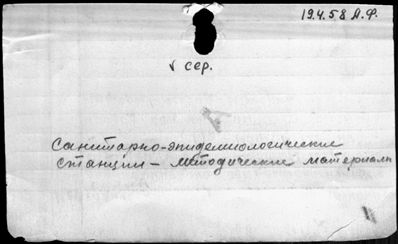 19.4.58 А.Ф.
√ сер.
Санитарно-эпидемиологические
станции – методические материалы